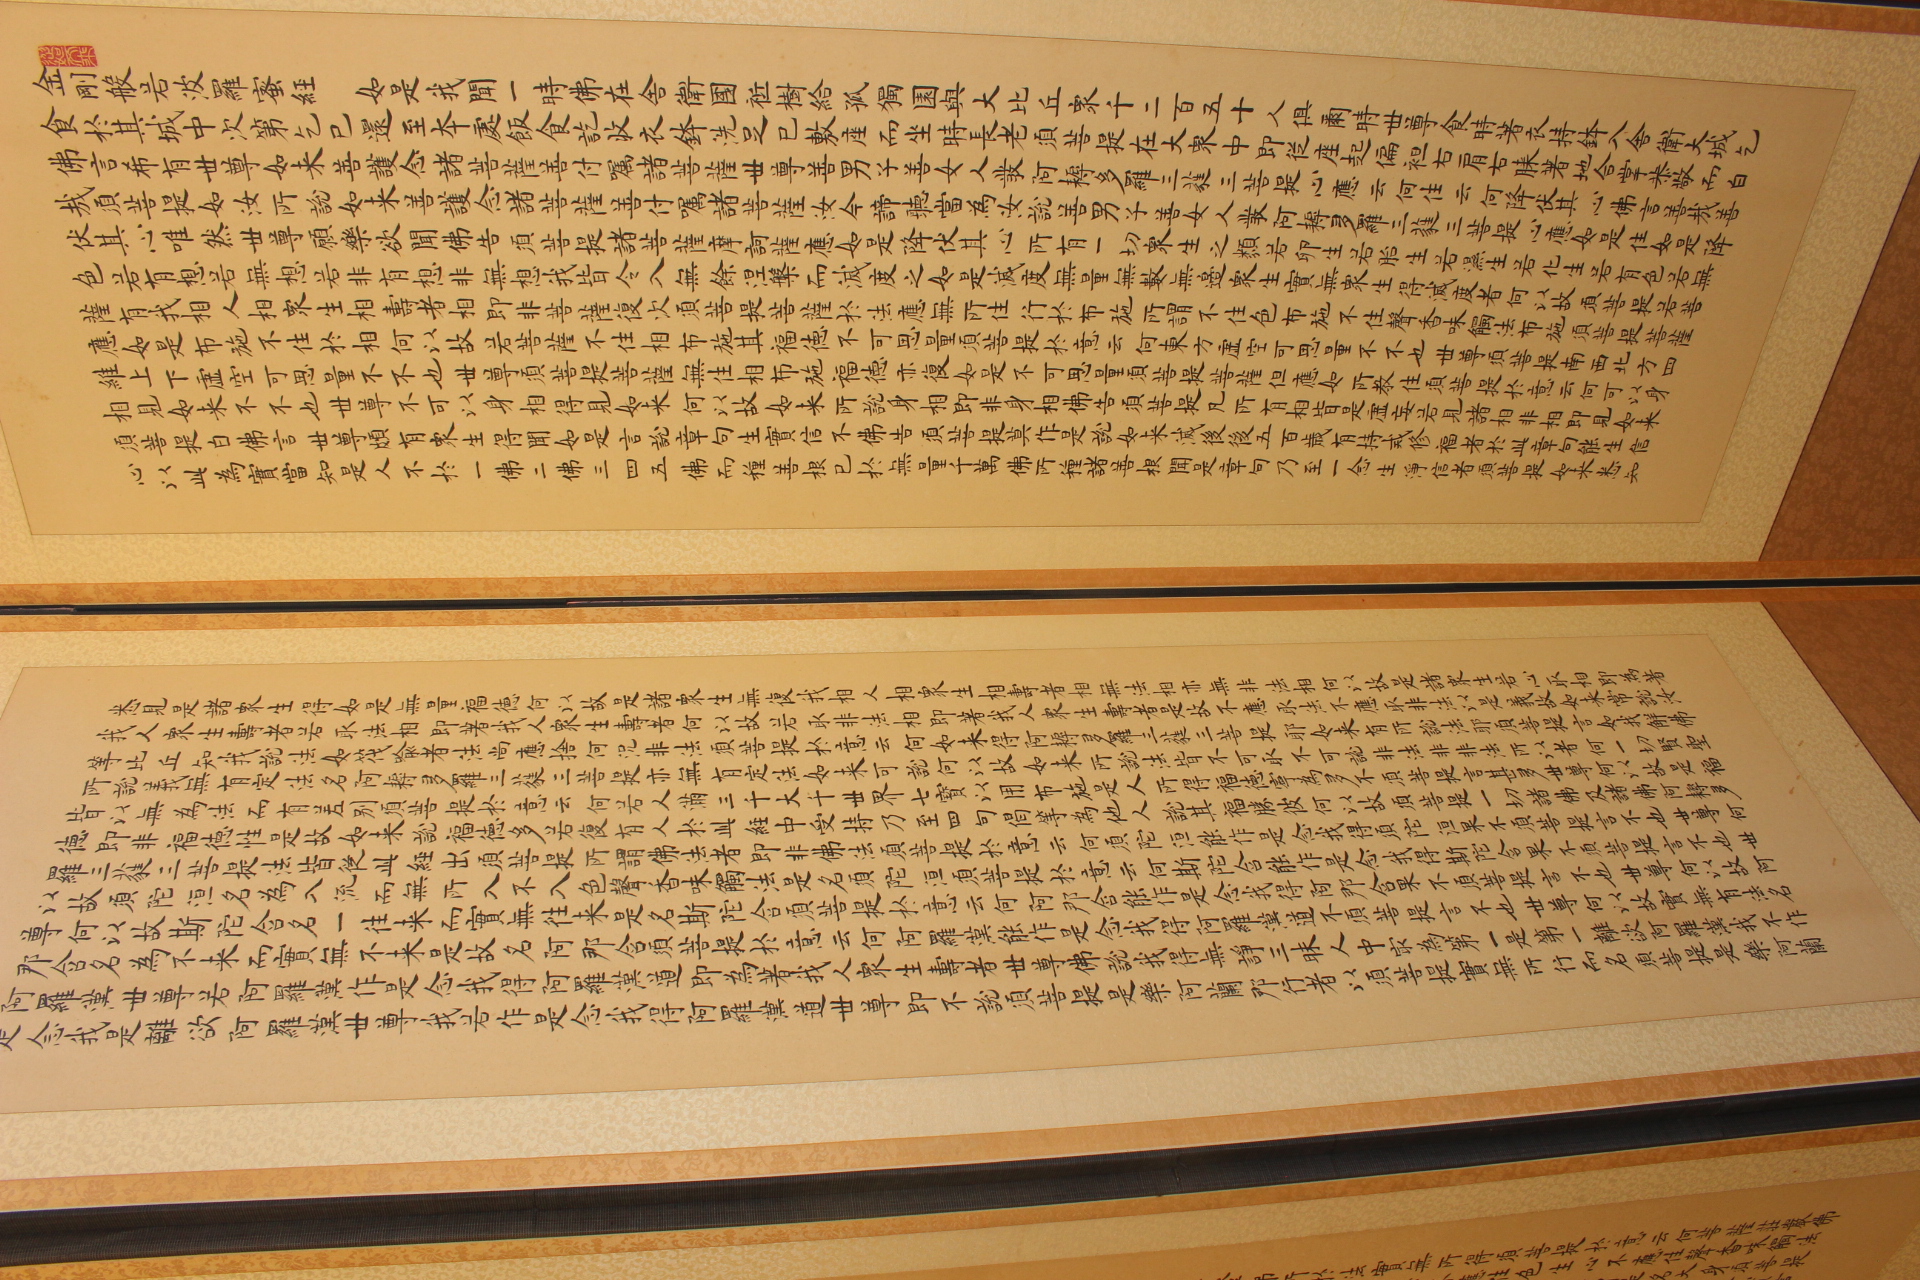 金剛般若波羅蜜經　如是我聞一時佛在舍衛國祇樹給孤獨園與大比丘衆千二百五十人俱爾時世尊食時著衣持鉢入舍衛大城乞
食於其城中次第乞已還至本處飯食訖收衣鉢洗足已敷座而坐時長老須菩提在大衆中即從座起偏袒右肩右膝著地合掌恭敬而白
佛言希有世尊如來善護念諸菩薩善付囑諸菩薩世尊善男子善女人發阿耨多羅三藐三菩提心應云何住云何降伏其心佛言善哉善
哉須菩提如汝所說如來善護念諸菩薩善付囑諸菩薩汝今諦聽當為汝說善男子善女人發阿耨多羅三藐三菩提心應如是住如是降
伏其心唯然世尊願樂欲聞佛告須菩提諸菩薩摩訶薩應如是降伏其心所有一切衆生之類若卵生若胎生若濕生若化生若有色若無
色若有想若無想若非有想非無想我皆令入無餘涅槃而滅度之如是滅度無量無數無邊衆生實無衆生得滅度者何以故須菩提若菩
薩有我相人相衆生相壽者相即非菩薩復次須菩提菩薩於法應無所住行於布施所謂不住色布施不住聲香味觸法布施須菩提菩薩
應如是布施不住於相何以故若菩薩不住相布施其福德不可思量須菩提於意云何東方虛空可思量不不也世尊須菩提南西北方四
維上下虛空可思量不不也世尊須菩提菩薩無住相布施福德亦復如是不可思量須菩提菩薩但應如所教住須菩提於意云何可以身
相見如來不不也世尊不可以身相得見如來何以故如來所說身相即非身相佛告須菩提凡所有相皆是虛妄若見諸相非相即見如來
須菩提白佛言世尊頗有衆生得聞如是言說章句生實信不佛告須菩提莫作是說如來滅後後五百歲有持戒修福者於此章句能生信
心以此為實當知是人不於一佛二佛三四五佛而種善根已於無量千萬佛所種諸善根聞是章句乃至一念生淨信者須菩提如來悉知
悉見是諸衆生得如是無量福德何以故是諸衆生無復我相人相衆生相壽者相無法相亦無非法相何以故是諸衆生若心取相即為著
我人衆生壽者若取法相即著我人衆生壽者何以故若取非法相即著我人衆生壽者是故不應取法不應取非法以是義故如來常說汝
等比丘知我說法如筏喻者法尚應捨何況非法須菩提於意云何如來得阿耨多羅三藐三菩提耶如來有所說法耶須菩提言如我解佛
所說義無有定法名阿耨多羅三藐三菩提亦無有定法如來可說何以故如來所說法皆不可取不可說非法非非法所以者何一切賢聖
皆以無為法而有差別須菩提於意云何若人滿三千大千世界七寶以用布施是人所得福德寧為多不須菩提言甚多世尊何以故是福
德即非福德性是故如來說福德多若復有人於此經中受持乃至四句偈等為他人說其福勝彼何以故須菩提一切諸佛及諸佛阿耨多
羅三藐三菩提法皆從此經出須菩提所謂佛法者即非佛法須菩提於意云何須陀洹能作是念我得須陀洹果不須菩提言不也世尊何
以故須陀洹名為入流而無所入不入色聲香味觸法是名須陀洹須菩提於意云何斯陀含能作是念我得斯陀含果不須菩提言不也世
尊何以故斯陀含名一往來而實無往來是名斯陀含須菩提於意云何阿那含能作是念我得阿那含果不須菩提言不也世尊何以故阿
那含名為不來而實無不來是故名阿那含須菩提於意云何阿羅漢能作是念我得阿羅漢道不須菩提言不也世尊何以故實無有法名
阿羅漢世尊若阿羅漢作是念我得阿羅漢道即為著我人衆生壽者世尊佛說我得無諍三昧人中最為第一是第一離欲阿羅漢我不作
是念我是離欲阿羅漢世尊我若作是念我得阿羅漢道世尊即不說須菩提是樂阿蘭那行者以須菩提實無所行而名須菩提是樂阿蘭
於法實無所得須菩提於意云何菩薩莊嚴佛
生心不應住聲香味觸法
名大身須菩提